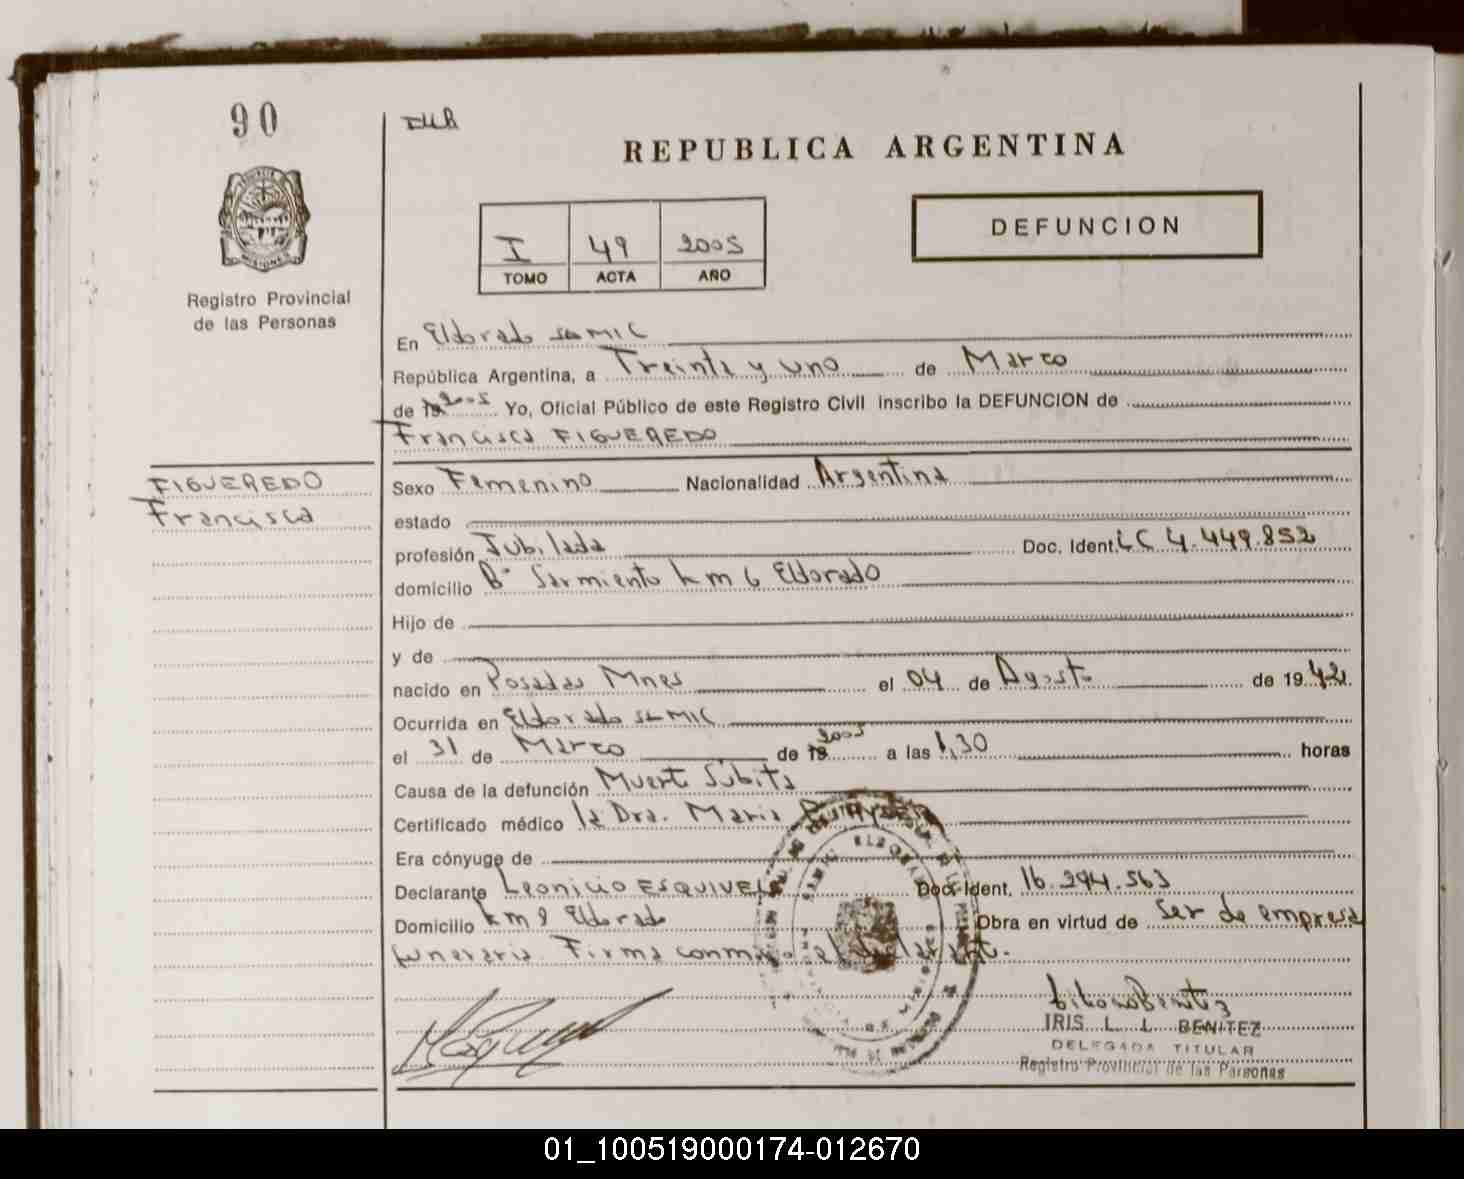 90
REPUBLICA ARGENTINA
MISIONES
Registro Provincial
de las Personas
I 49 2005
TOMO ACTA AÑO
DEFUNCION
En Eldorado SAMIC
República Argentina, a Treinta y uno de Marzo
de 19 2005 Yo, Oficial Público de este Registro Civil inscribo la DEFUNCION de
Francisca FIGUEREDO
FIGUEREDO
Francisca
Sexo Femenino Nacionalidad Argentina
estado
profesión Jubilada Doc. Ident. LC 4.449.852
domicilio B° Sarmiento km 6 Eldorado
Hijo de
y de
nacido en Posadas Mnes el 04 de Agosto de 19 42
Ocurrida en Eldorado SAMIC
el 31 de Marzo de 19 2005 a las 1,30 horas
Causa de la defunción Muerte Súbita
Certificado médico la Dra. Maria
Era cónyuge de
Declarante Leonicio ESQUIVEL Doc. Ident. 16.294.563
Domicilio km 9 Eldorado Obra en virtud de Ser de empresa
funeraria. Firma conmigo el declarante.
IRIS L. L. BENITEZ
DELEGADA TITULAR
Registro Provincial de las Personas
01_100519000174-012670